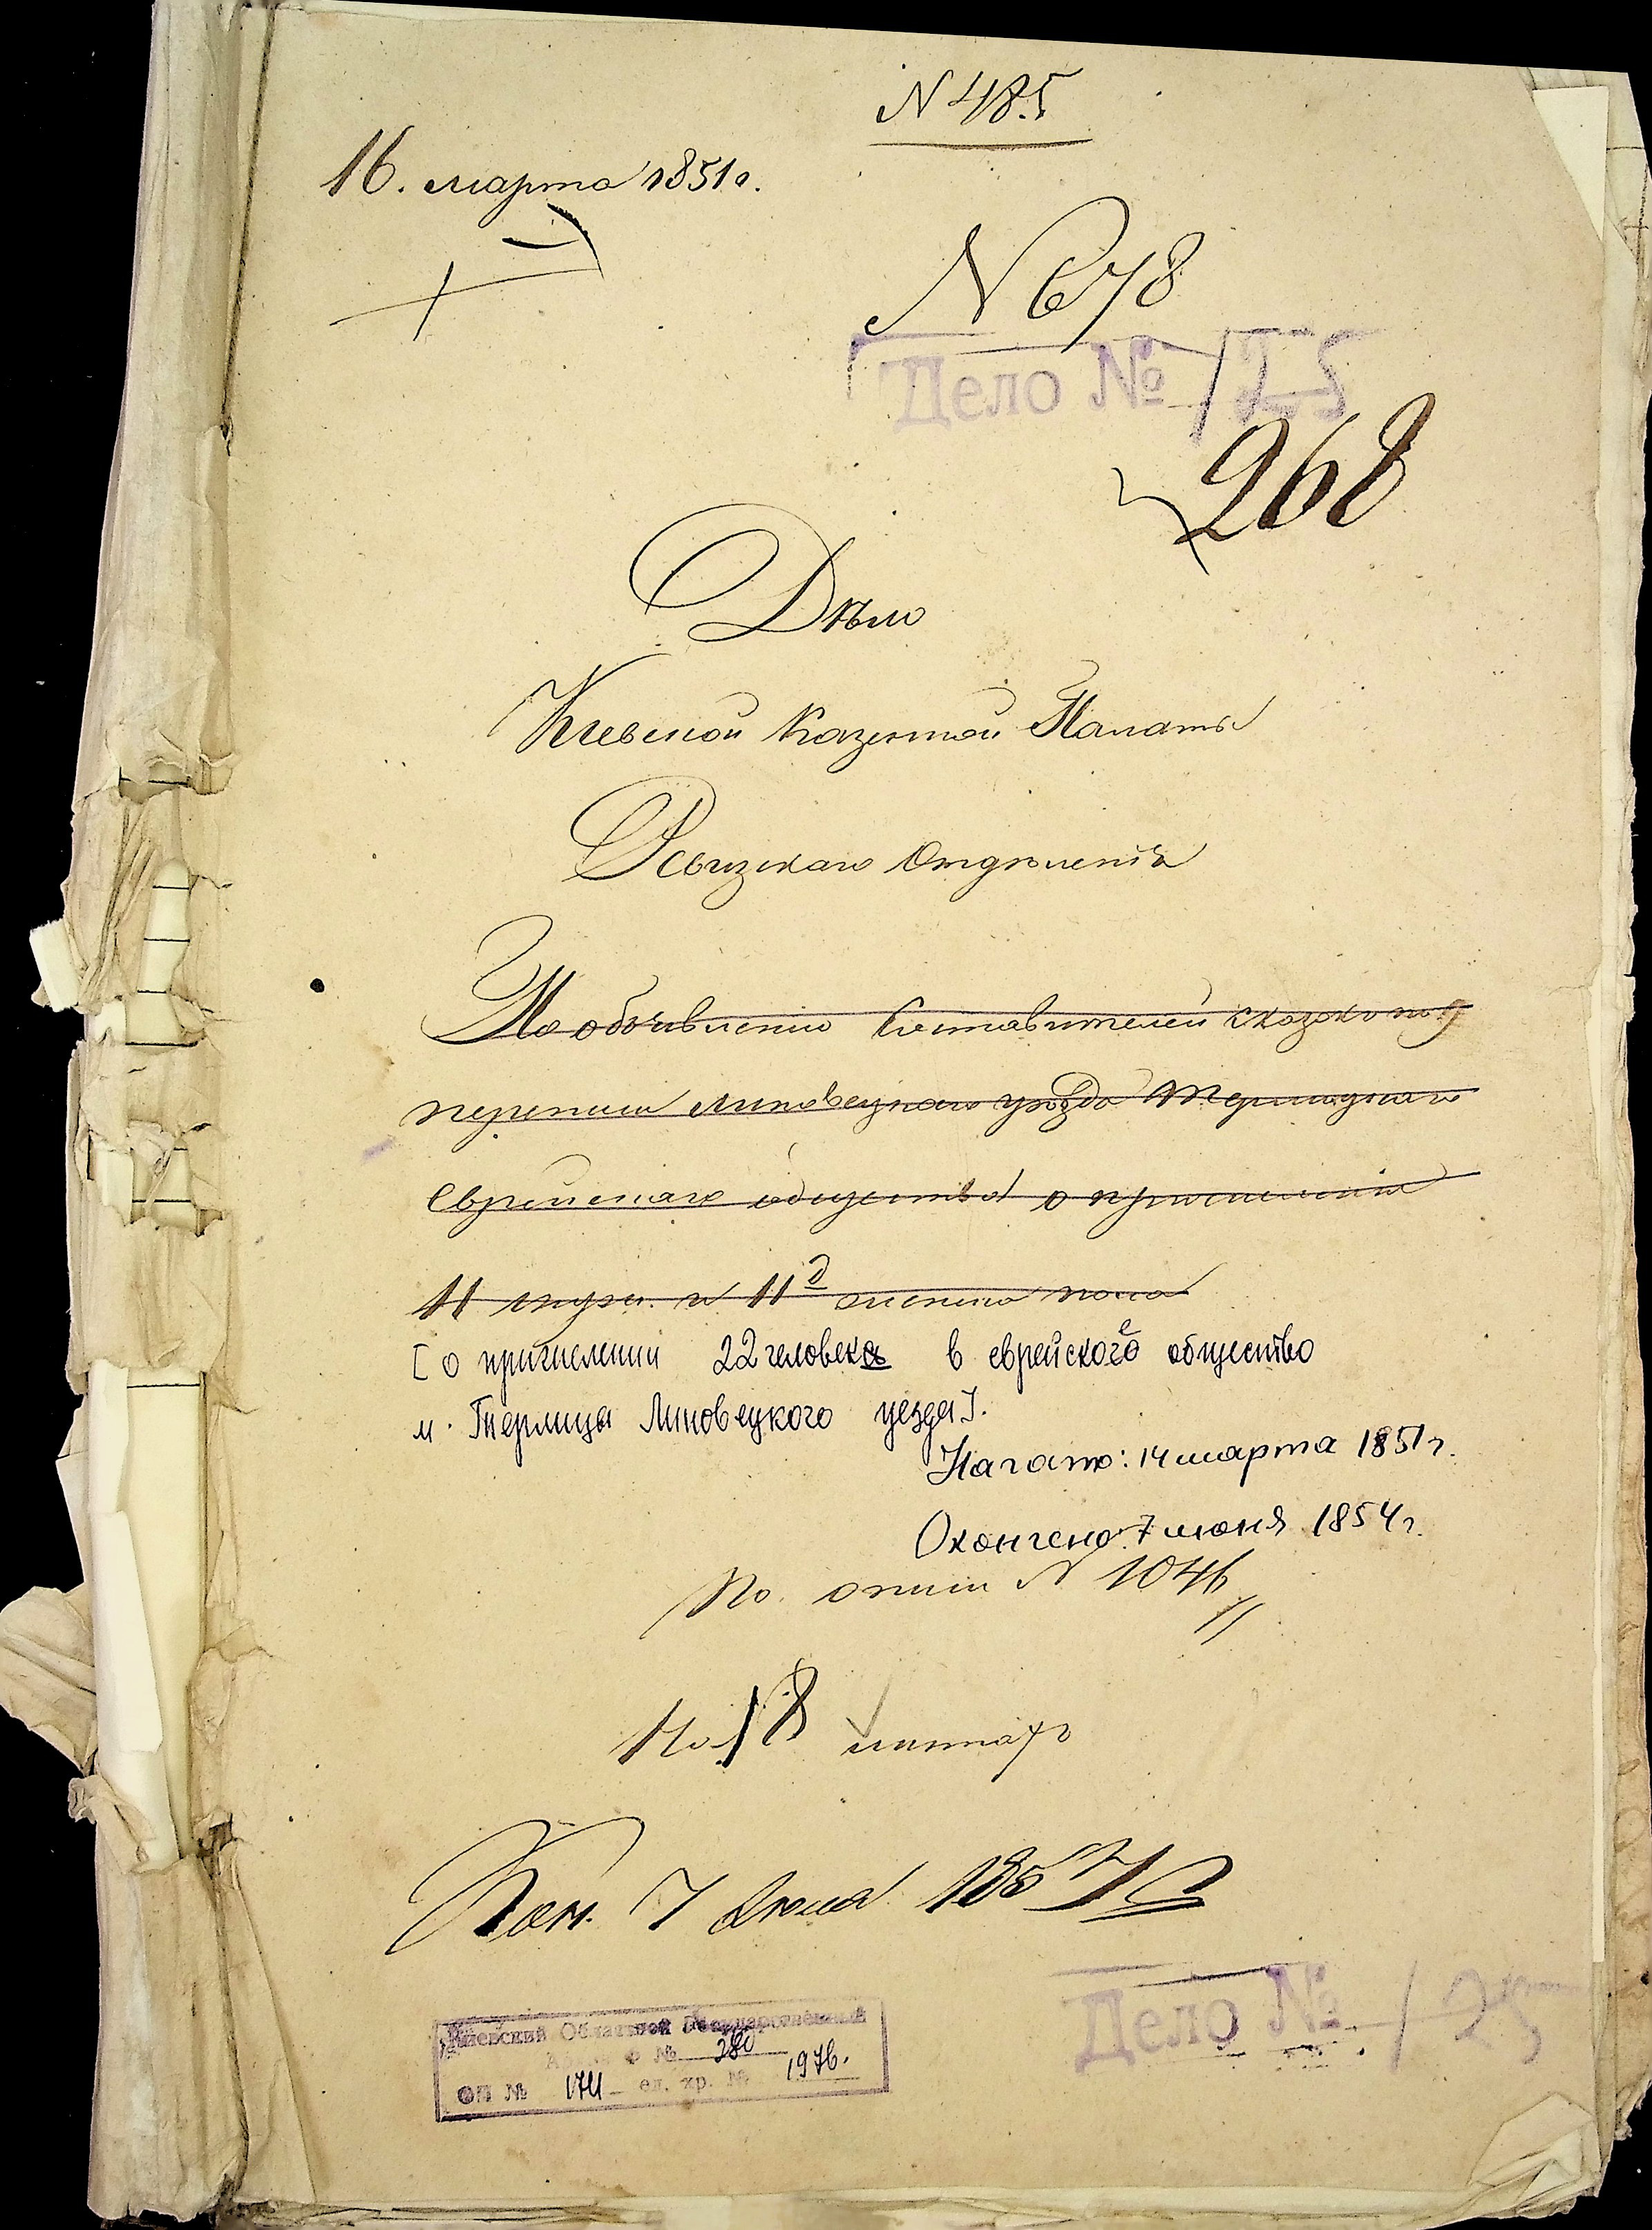 N 485
16. марта 1851 г.
N 678
Дело № 125
268
Дѣло
Кіевской Казенной Палаты
Ревизскаго Отдѣленія
По объявленію Составителей сказокъ по 9
переписи Липовецкаго уѣзда Терлицкаго
Еврейскаго общества о причисленіи
11 муж. и 11 д женска пола
[о причислении 22 человек в еврейское общество
м. Терлица Липовецкого уезда].
Начато: 14 марта 1851 г.
Окончено: 7 июня 1854 г.
По описи N 1046
На 18 листахъ
Кон. 7 Июня 1854 г
Киевский Областной Государственный
Архив Ф № 280
ОП № 174 ед. хр. № 1976.
Дело № 125